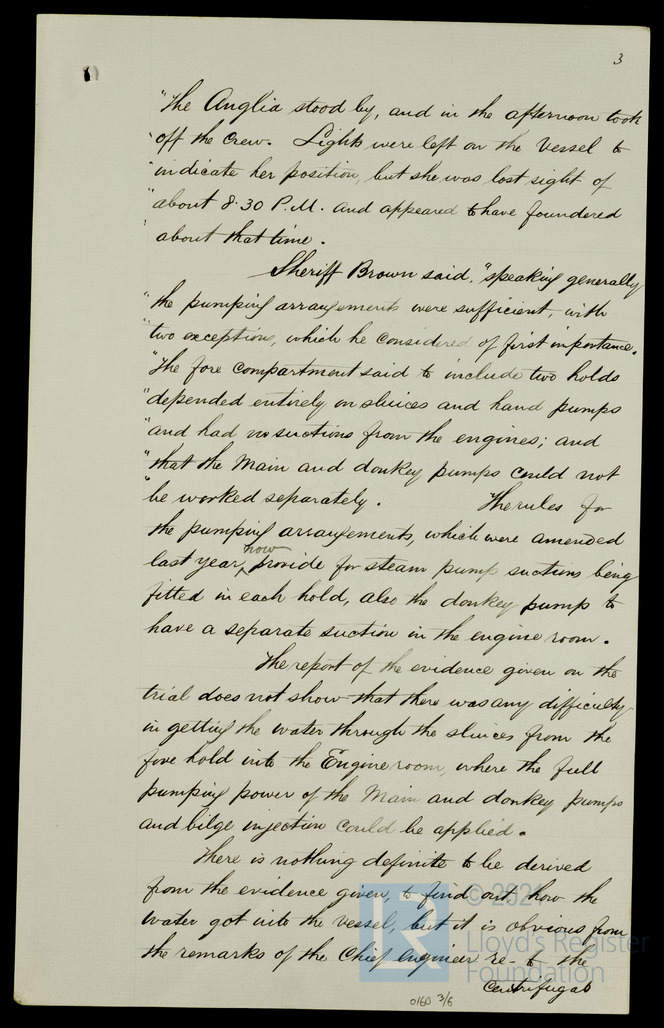 3
"The Anglia stood by, and in the afternoon took
"off the Crew. Lights were left on the Vessel to
"indicate her position, but she was lost sight of
"about 8.30 P.M. and appeared to have foundered
"about that time.
Sheriff Brown said, "speaking generally
"the pumping arrangements were sufficient, with
"two exceptions, which he considered of first importance.
"The fore compartment said to include two holds
"depended entirely on sluices and hand pumps
"and had no suctions from the engines; and
"that the Main and donkey pumps could not
"be worked separately. The rules for
the pumping arrangements, which were amended
last year, now provide for steam pump suctions being
fitted in each hold, also the donkey pump to
have a separate suction in the engine room.
The report of the evidence given on the
trial does not show that there was any difficulty
in getting the water through the sluices from the
fore hold into the Engine room, where the full
pumping power of the Main and donkey pumps
and bilge injection could be applied.
There is nothing definite to be derived
from the evidence given, to find out how the
water got into the vessel, but it is obvious from
the remarks of the Chief Engineer re- to the
Centrifugal
0160 3/6
© 2021
Lloyd's Register
Foundation